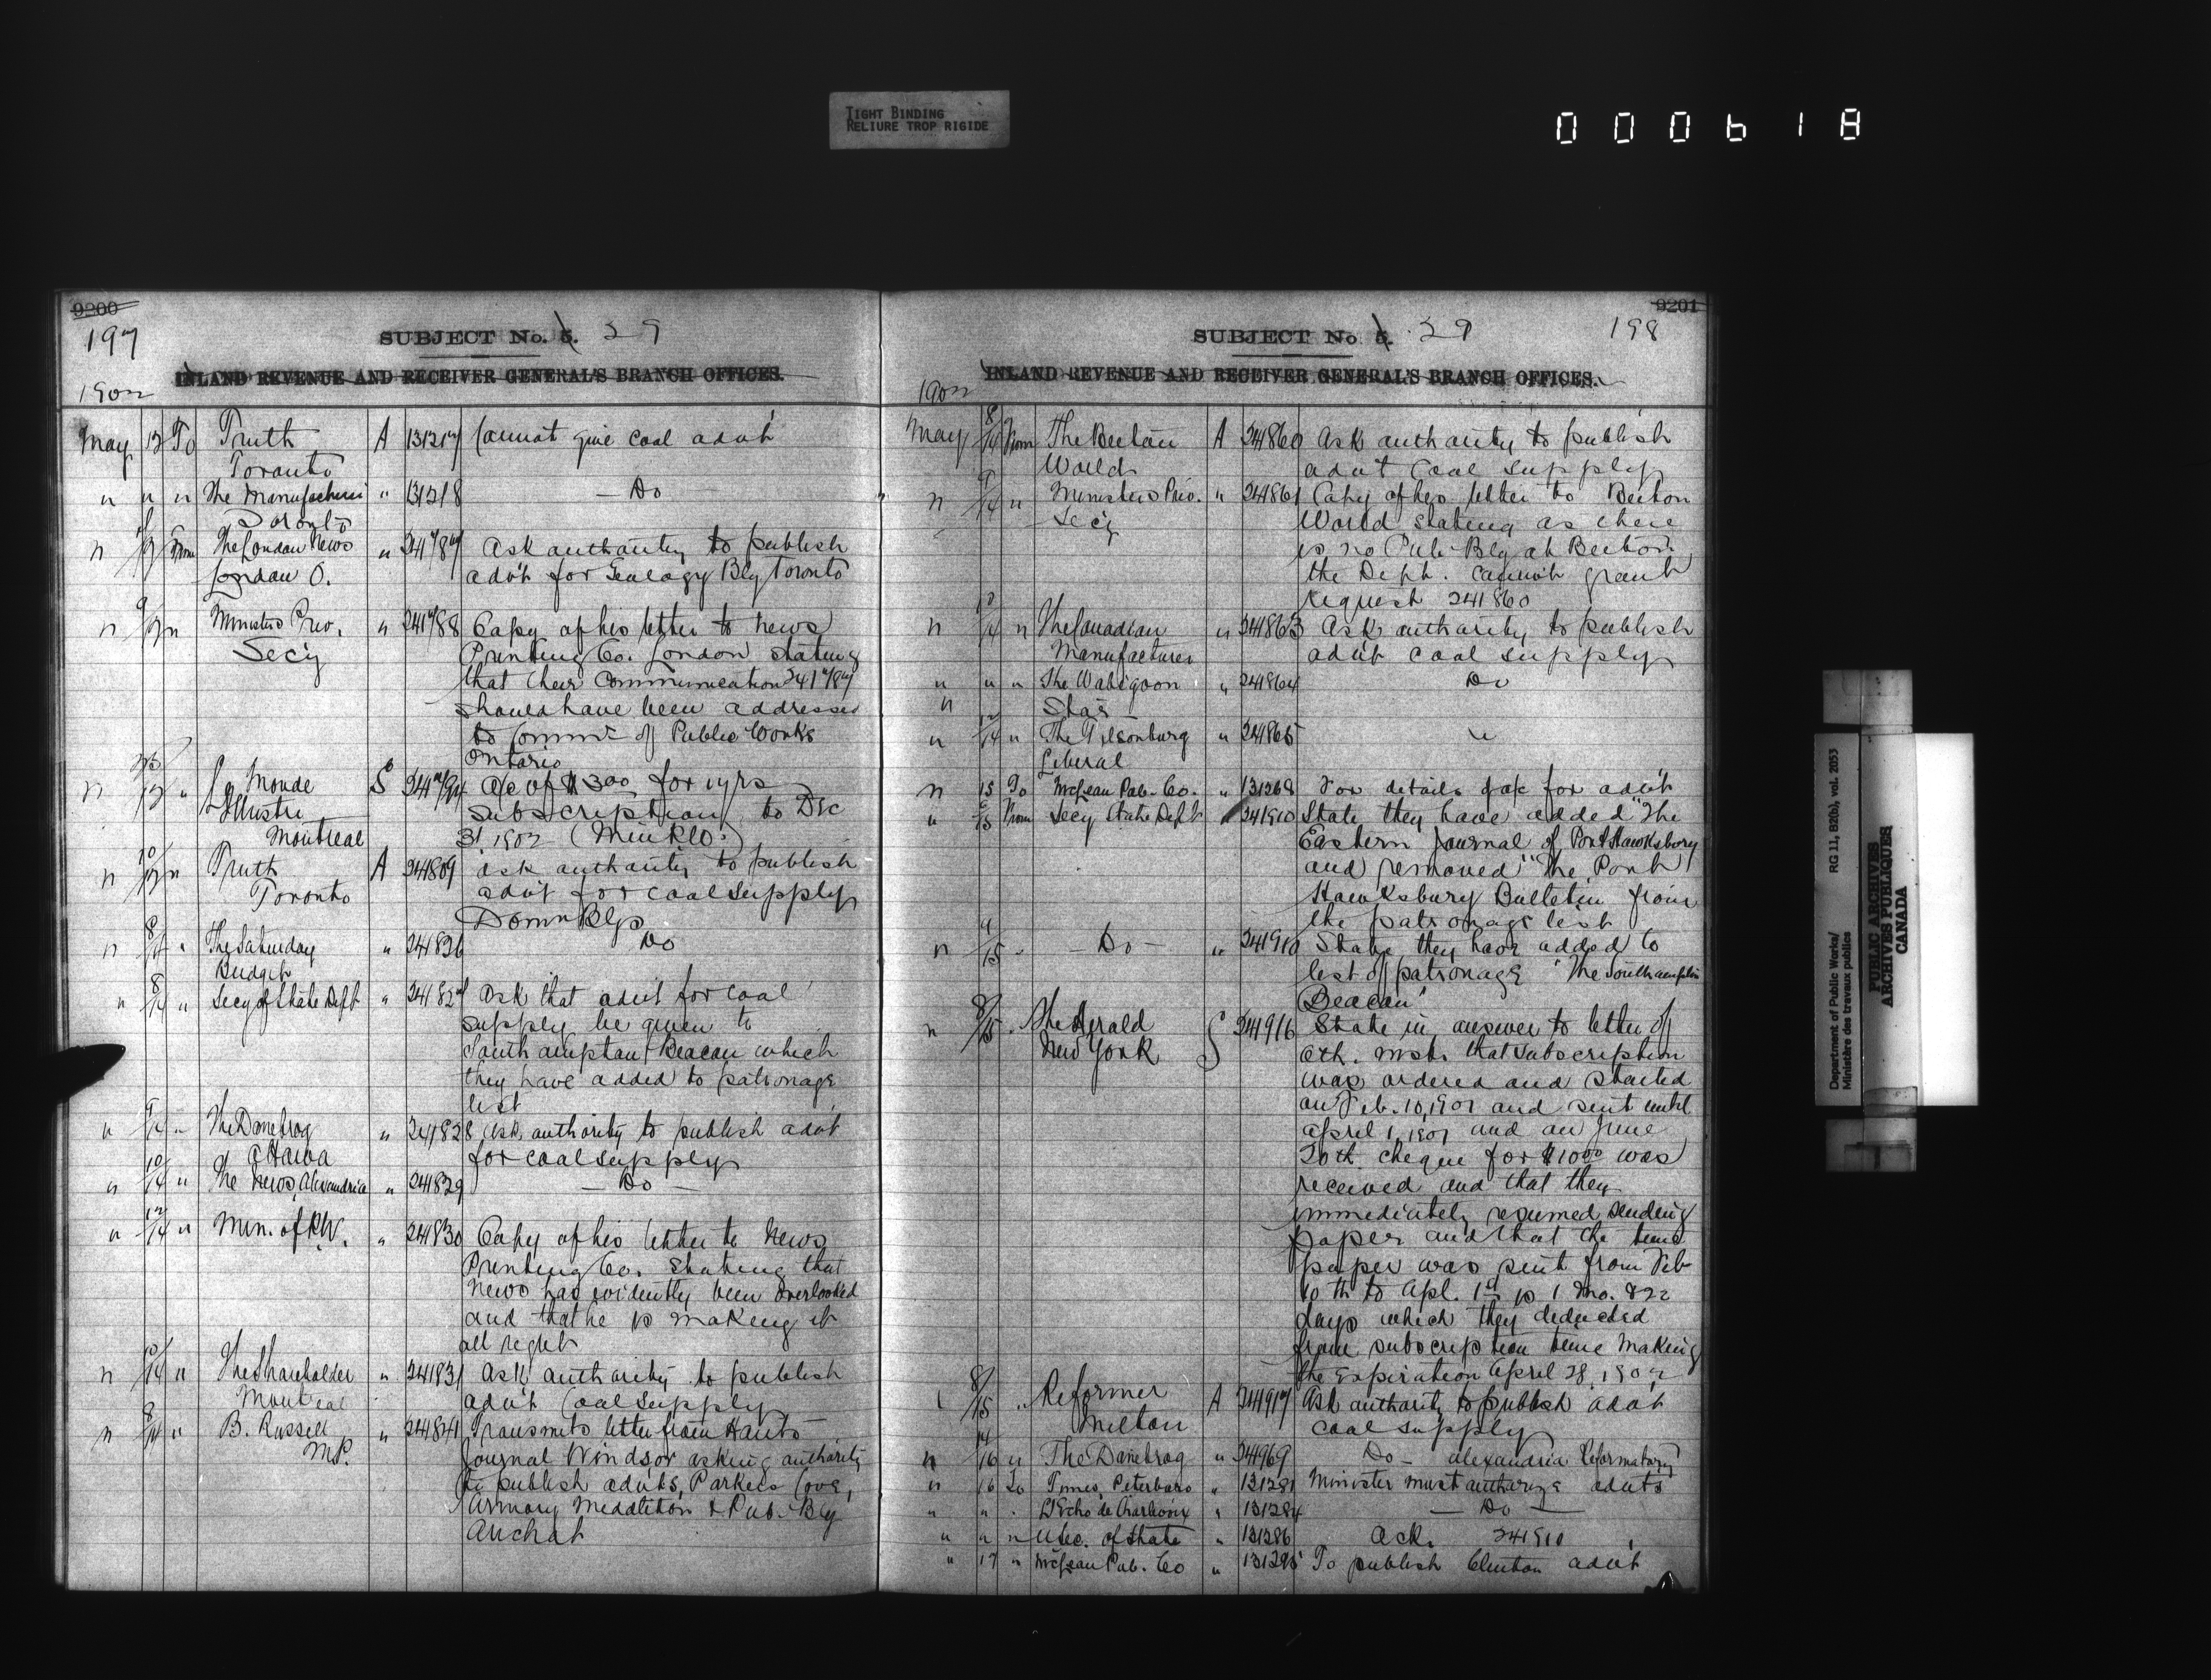 TIGHT BINDING
RELIURE TROP RIGIDE
000618
9200
197
SUBJECT No. 5. 29
INLAND REVENUE AND RECEIVER GENERAL'S BRANCH OFFICES.
1902
May 13 To Truth A 131217 Cannot give coal advt
Toronto
" " " The Manufacturer " 131218 — Do
Toronto
" From The London News " 241787 Ask authority to publish
London O. advt for Geology Blg Toronto
" 9/13 " Ministers Priv. " 241788 Copy of his letter to News
Secy Printing Co. London stating
that their communication 241787
should have been addressed
to Commr of Public Works
Ontario
" " Le Monde S 241794 a/c of $3.00 for 1 yrs
Illustre subscription to Dec
Montreal 31, 1902
" 10/13 " Truth A 241809 Ask authority to publish
Toronto advt for coal supply
Domn Blgs
" 8/14 " The Saturday " 241826 Do
Budget
" 8/14 " Secy of State Dept " 241827 Ask that advt for coal
supply be given to
Southampton Beacon which
they have added to patronage
list
" 9/14 " The Danebrog " 241828 Ask authority to publish advt
Ottawa for coal supply
" 10/14 " The News, Alexandria " 241829 — Do —
" 12/14 " Min. of P.W. " 241830 Copy of his letter to News
Printing Co. stating that
News has evidently been overlooked
and that he is making it
all right
" 10/14 " The Shareholder " 241831 Ask authority to publish
Montreal advt Coal supply
" 8/14 " B. Russell " 241841 Transmits letter from Hants
M.P. Journal Windsor asking authority
to publish advts, Parkers Cove,
Armory Middleton & Pub. Blg
Arichat
9201
198
SUBJECT No 5. 29
INLAND REVENUE AND RECEIVER GENERAL'S BRANCH OFFICES.
1902
May 8/14 From The Beeton A 241860 Ask authority to publish
World advt Coal supply
" 9/14 " Ministers Priv. " 241861 Copy of his letter to Beeton
Secy World stating as there
is no Pub. Blg at Beeton
the Dept. cannot grant
request 241860
" 10/14 " The Canadian " 241863 Ask authority to publish
Manufacturer advt coal supply
" " " The Wabigoon " 241864 Do
" Star
" 12/14 " The Tilsonburg " 241865 "
Liberal
" 15 To McLean Pub. Co. " 131268 For details of a/c for advt
" From Secy State Dept " 241910 State they have added "The
Eastern Journal of Port Hawksbury
and removed "The Port
Hawksbury Bulletin from
the patronage list
" 9/15 " — Do — " 241910 State they have added to
list of patronage "The Southampton
Beacon"
" 8/15 " The Herald S 241916 State in answer to letter of
New York 6th. inst. that subscription
was ordered and started
on Feb. 10, 1901 and sent until
April 1, 1901 and on June
20th cheque for $10.00 was
received and that they
immediately resumed sending
paper and that the time
paper was sent from Feb
10th to Apl. 1st is 1 mo. & 22
days which they deducted
from subscription time making
the expiration April 28, 1902
" 8/15 " Reformer A 241917 Ask authority to publish advt
Milton coal supply
" 14/16 " The Danebrog " 241969 Do — Alexandria Reformatory
" 16 To Times, Peterboro " 131281 Minister must authorize advts
" " " L'Echo de Charlevoix " 131284 — Do —
" " " U Sec. of State " 131286 Ack. 241910
" 17 " McLean Pub. Co " 131295 To publish Clinton advt
Department of Public Works/
Ministère des travaux publics
RG 11, B2(b), vol. 2053
PUBLIC ARCHIVES
ARCHIVES PUBLIQUES
CANADA